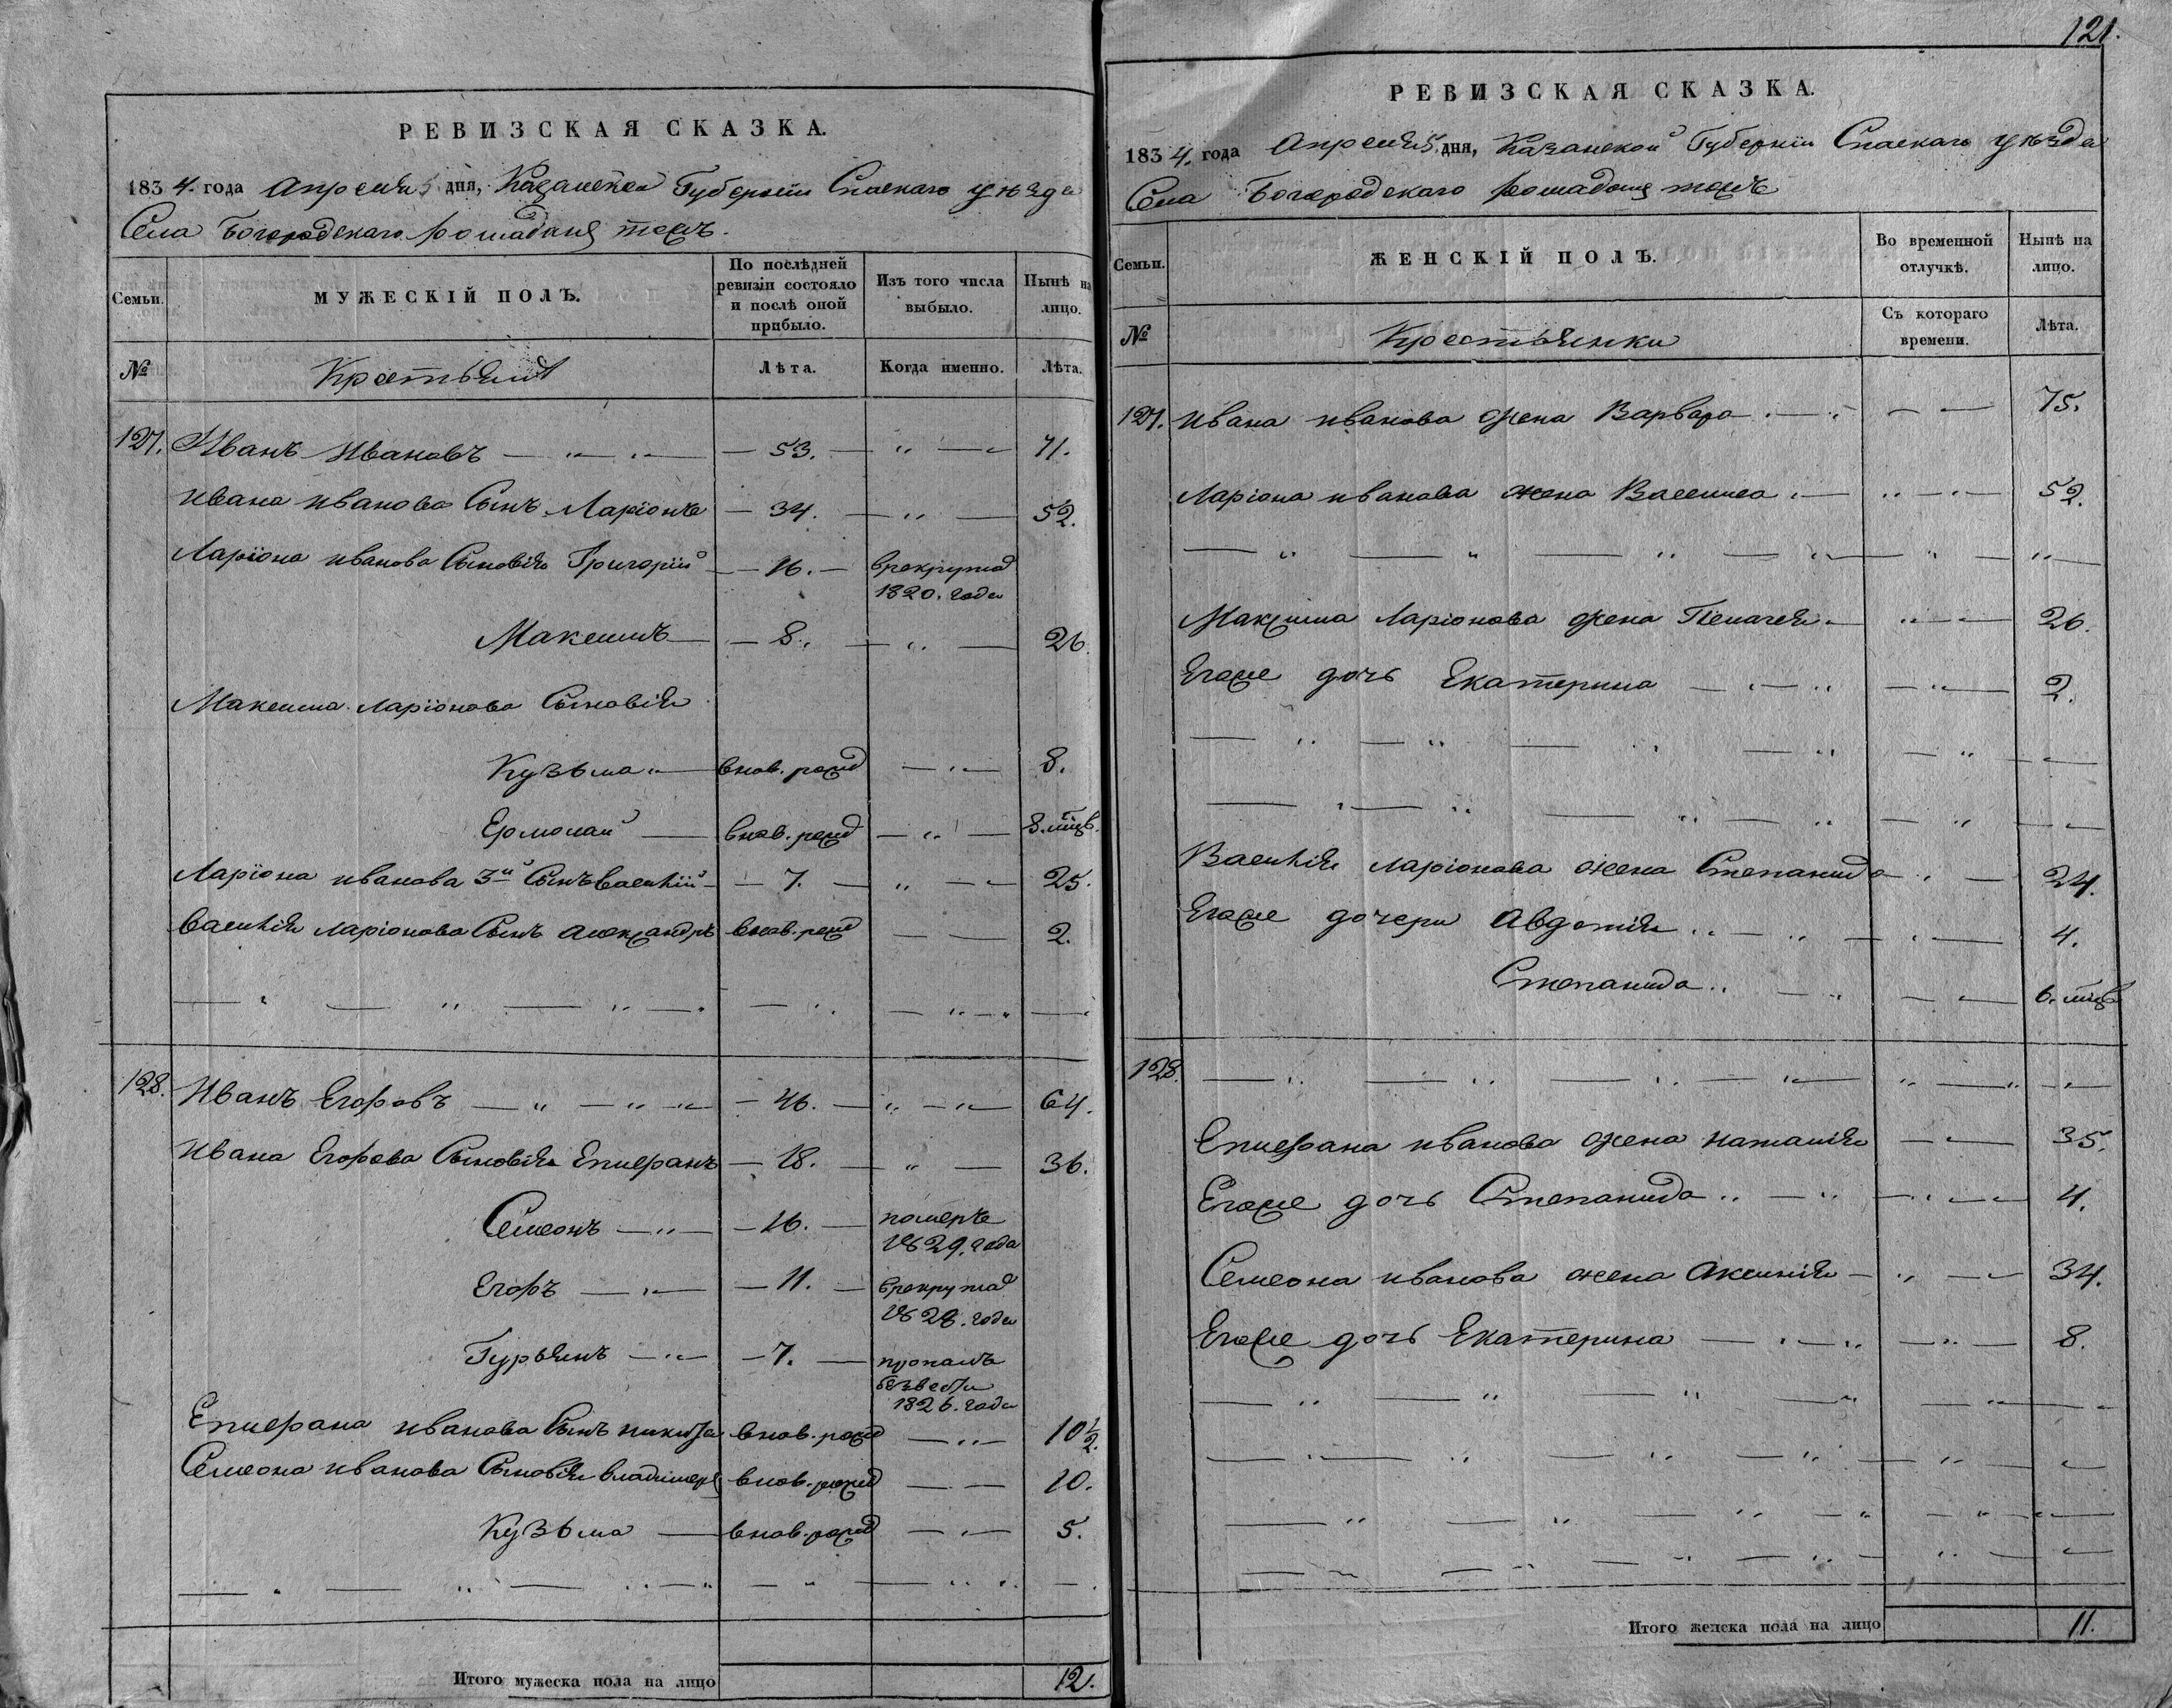 РЕВИЗСКАЯ СКАЗКА.
1834. года Апреля 5 дня, Казанской Губернiи Спаскаго уѣзда
Села Богородскаго Рошдаст тожъ.
Семьи.
МУЖЕСКІЙ ПОЛЪ.
По послѣдней ревизіи состояло и послѣ оной прибыло.
Изъ того числа выбыло.
Нынѣ на лицо.
№
Крестьяне
Лѣта.
Когда именно.
Лѣта.
127. Иванъ Ивановъ — 53. — 71.
Ивана Иванова Сынъ Ларіонъ — 34. — 52.
Ларіона Иванова Сыновья Григорій — 16. — врекруты
1820. года
Максимъ — 8. — 26.
Максима Ларіонова Сыновья
Кузьма внов. рожд — 8.
Ермолай — внов. рожд — 8. мѣцъ.
Ларіона Иванова 3й Сынъ Василій — 7. — 25.
Василія Ларіонова Сынъ Александръ внов. рожд — 2.
128. Иванъ Егоровъ — 46. — 64.
Ивана Егорова Сыновья Епифанъ — 18. — 36.
Семеонъ — 16. — померъ
1829. года
Егоръ — 11. — врекруты
1828. года
Гурьянъ — 7. — пропалъ
безвести
1826. года
Епифана Иванова Сынъ Никита внов. рожд — 10 1/2.
Семеона Иванова Сыновья Владимеръ внов. рожд — 10.
Кузьма — внов. рожд — 5.
Итого мужеска пола на лицо 12.
121.
РЕВИЗСКАЯ СКАЗКА.
1834. года Апреля 5. дня, Казанской Губерніи Спаскаго уѣзда
Села Богородскаго тожъ
Семьи.
ЖЕНСКІЙ ПОЛЪ.
Во временной отлучкѣ.
Нынѣ на лицо.
№
Крестьянки
Съ котораго времени.
Лѣта.
127. Ивана Иванова жена Варвара — 75.
Ларіона Иванова жена Василиса — 52.
Максима Ларіонова жена Пелагея — 26.
Егоже дочь Екатерина — 2.
Василія Ларіонова жена Степанида — 24.
Егоже дочери Авдотья — 4.
Степанида — 6. мѣцъ
128.
Епифана Иванова жена Наталья — 35.
Егоже дочь Степанида — 4.
Семеона Иванова жена Аксинья — 34.
Егоже дочь Екатерина — 8.
Итого женска пола на лицо 11.